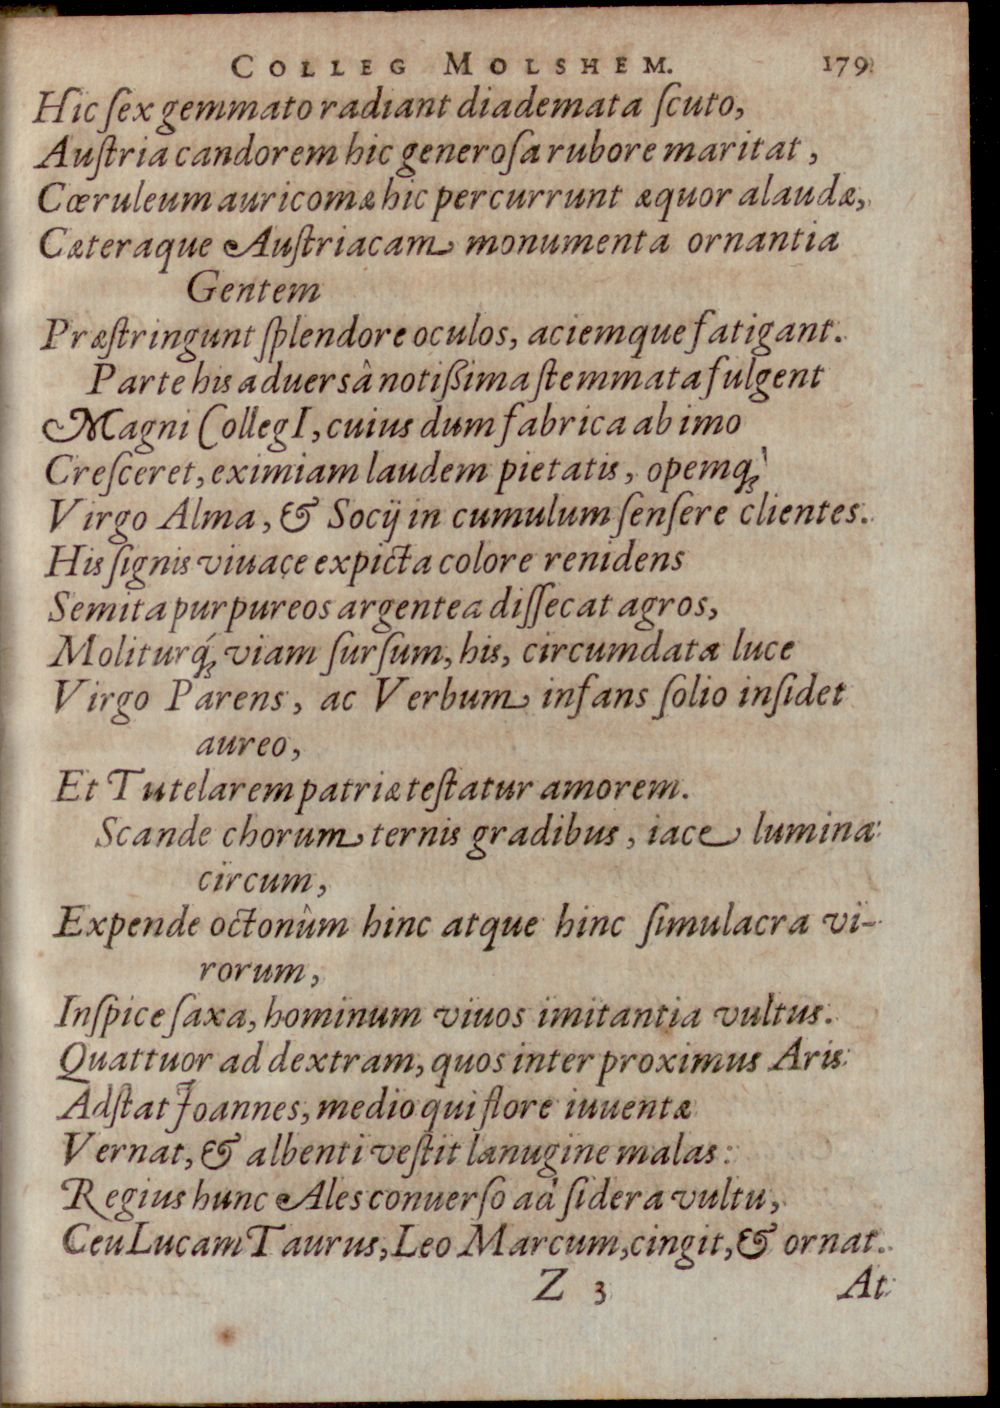 COLLEG MOLSHEM. 179
Hic ſex gemmato radiant diademata ſcuto,
Auſtria candorem hic generoſa rubore maritat,
Cœruleum auricomæ hic percurrunt æquor alaudæ,
Cæteraque Auſtriacam monumenta ornantia
Gentem
Præſtringunt ſplendore oculos, aciemque fatigant.
Parte his aduersâ notißima ſtemmata fulgent
Magni CollegI, cuius dum fabrica ab imo
Creſceret, eximiam laudem pietatis, opemq́;
Virgo Alma, & Socij in cumulum ſenſere clientes.
His ſignis viuace expicta colore renidens
Semita purpureos argentea diſſecat agros,
Moliturq́; viam ſurſum, his, circumdata luce
Virgo Parens, ac Verbum infans ſolio inſidet
aureo,
Et Tutelarem patriæ teſtatur amorem.
Scande chorum ternis gradibus, iace lumina
circum,
Expende octonûm hinc atque hinc ſimulacra vi-
rorum,
Inſpice ſaxa, hominum viuos imitantia vultus.
Quattuor ad dextram, quos inter proximus Aris
Adſtat Joannes, medio qui flore iuuentæ
Vernat, & albenti veſtit lanugine malas:
Regius hunc Ales conuerſo ad ſidera vultu,
Ceu Lucam Taurus, Leo Marcum, cingit, & ornat.
Z 3 At